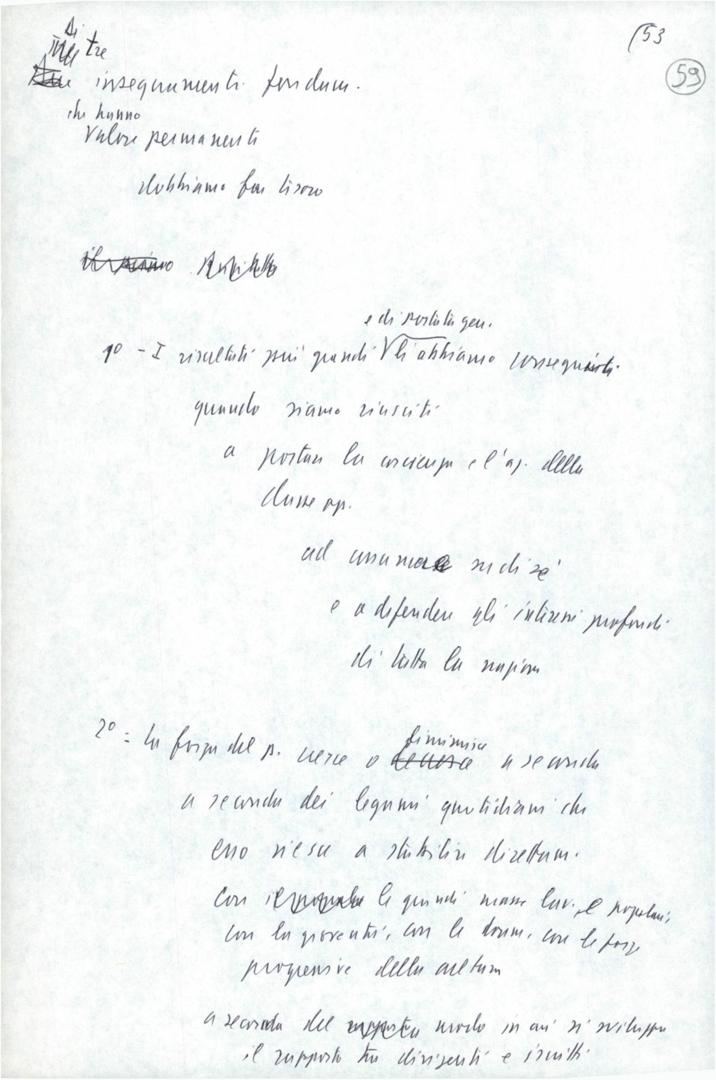 (53
59
Di
tre
insegnamenti fondam.
che hanno
valore permanenti
dobbiamo far tesoro
e di portata gen.
1º - I risultati più grandi li abbiamo conseguiti
quando siamo riusciti
a portare la coscienza e l'az. della
classe op.
ad assumere su di sé
e a difendere gli interessi profondi
di tutta la nazione
2º = la forza del p. cresce o
diminuisce
decresce
a seconda
a seconda dei legami quotidiani che
esso riesce a stabilire direttam.
con il popolo le grandi masse lav. e popolari,
con la gioventù, con le donne, con le forze
progressive della cultura
a seconda del rapporto modo in cui si sviluppa
il rapporto tra dirigenti e iscritti